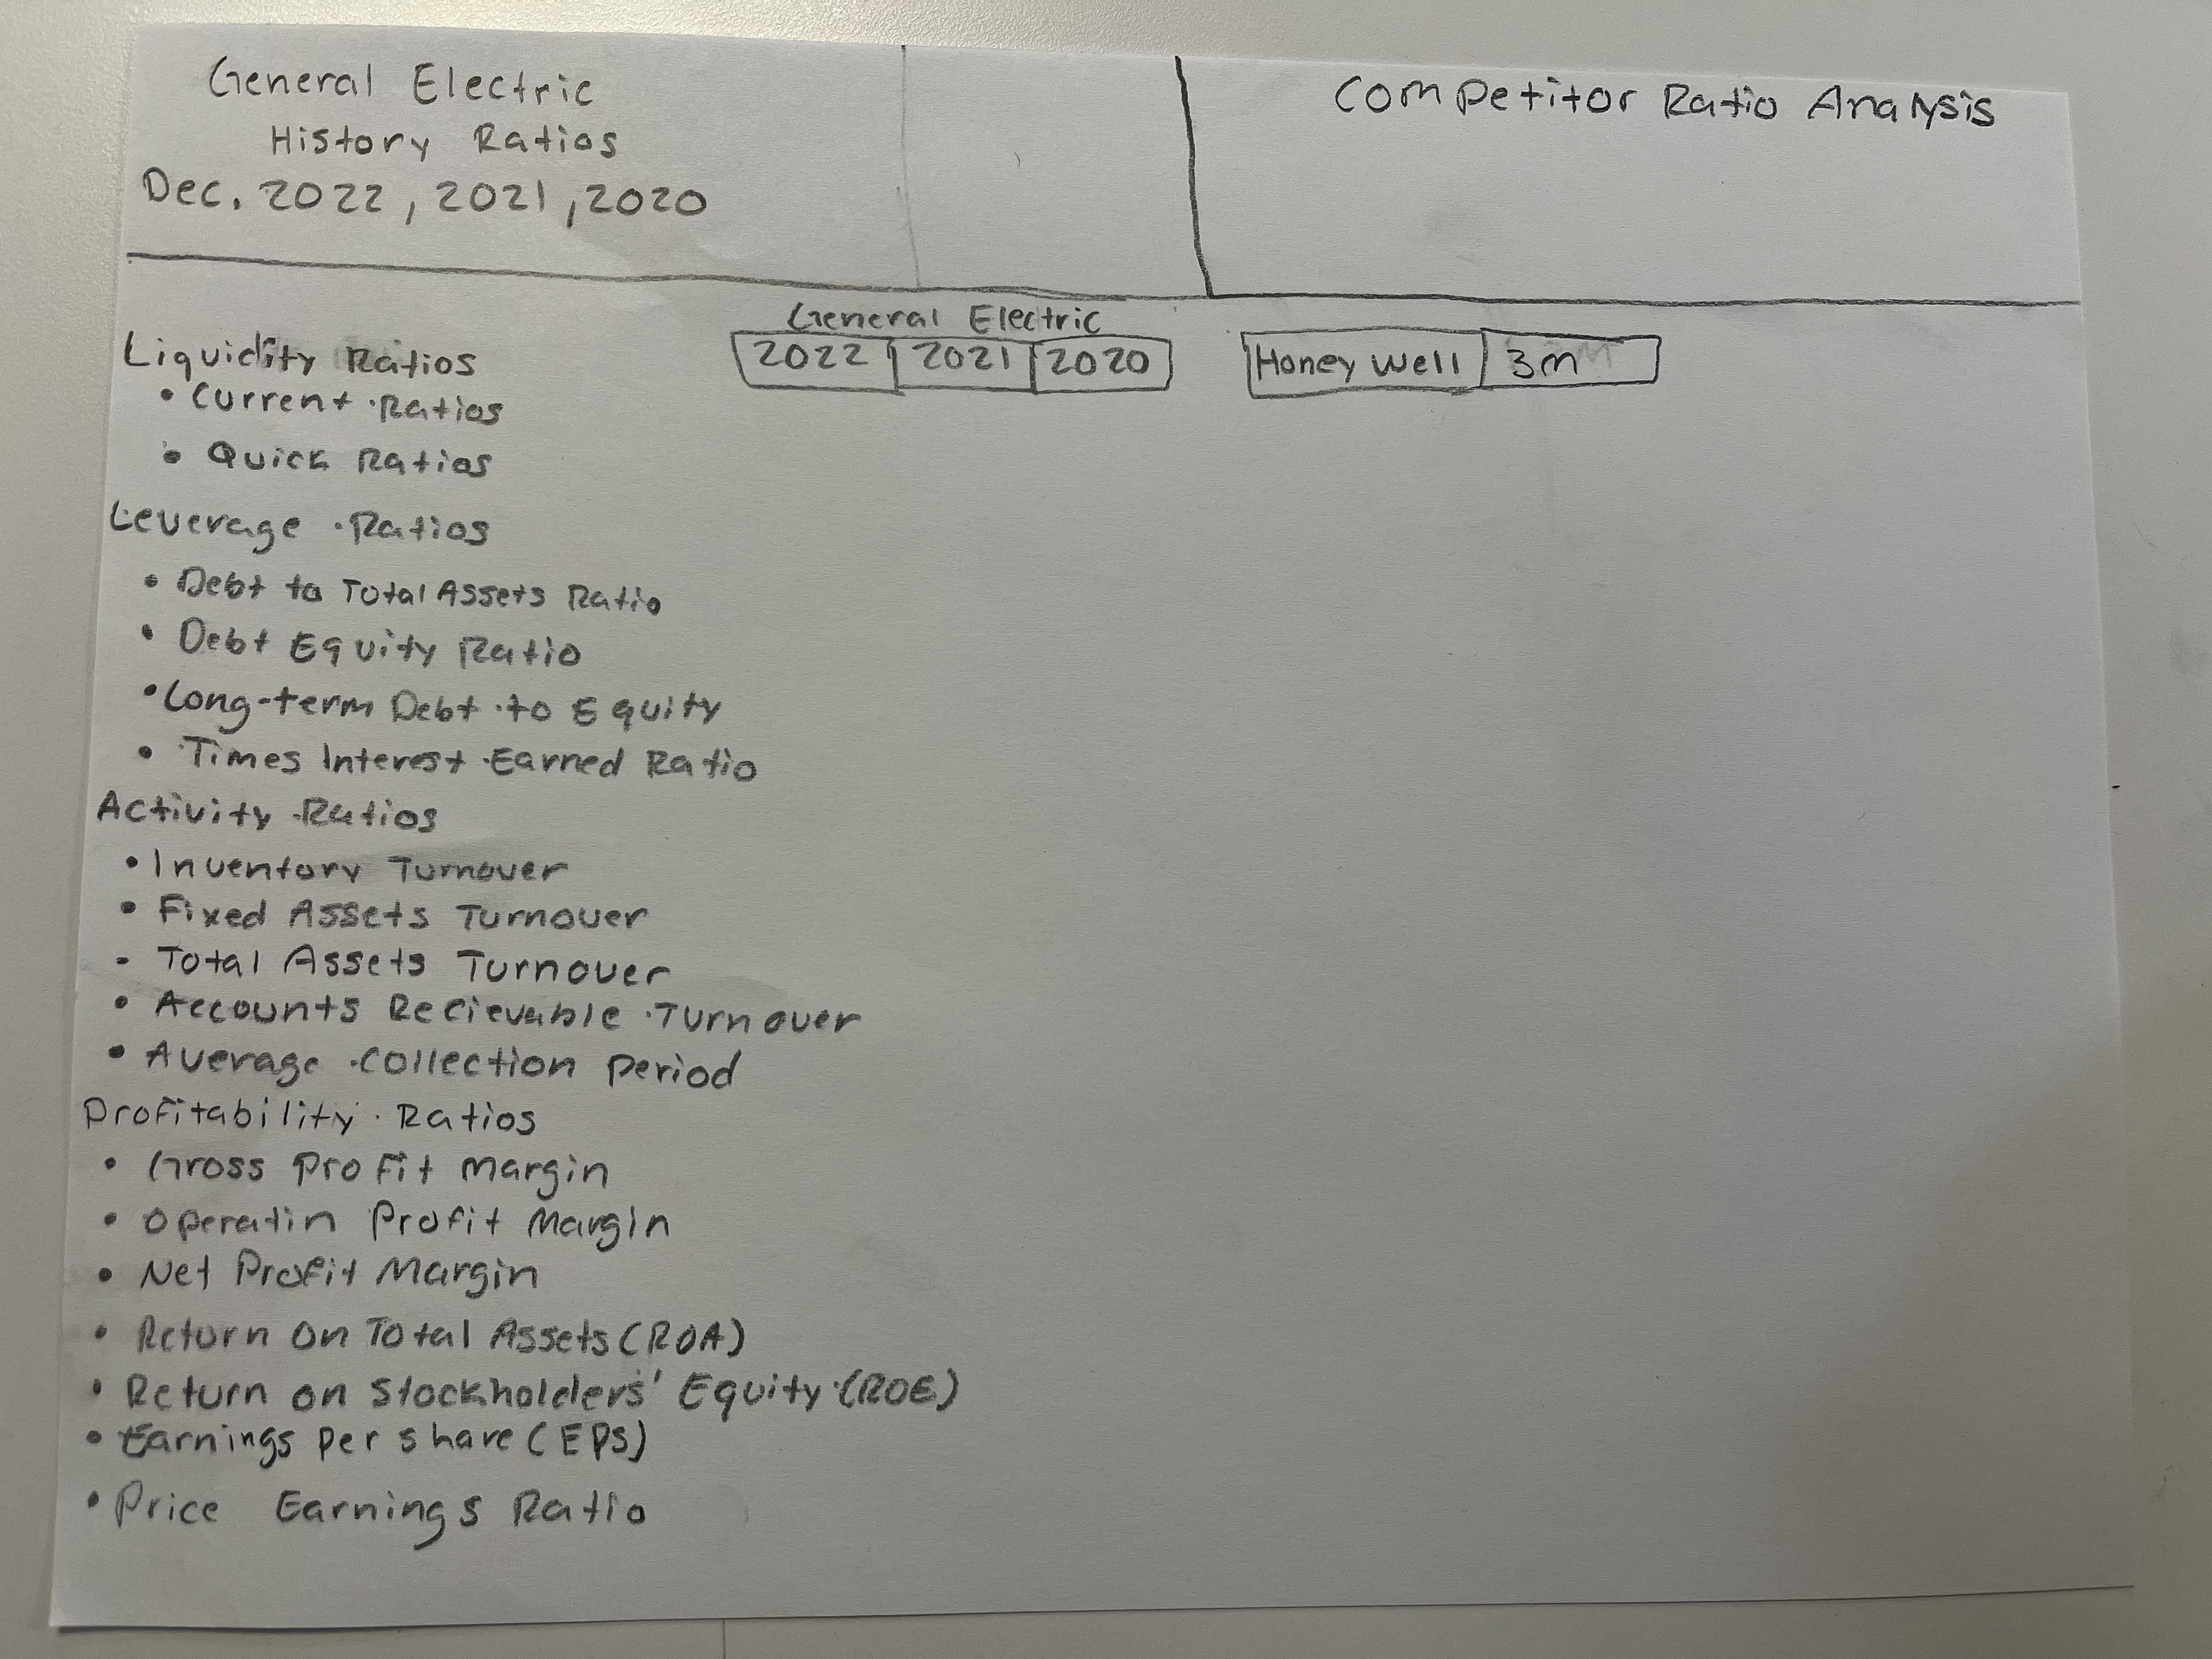 General Electric
History Ratios
Dec. 2022, 2021, 2020
Competitor Ratio Analysis
General Electric
2022 2021 2020
Honey well 3m
Liquidity Ratios
• Current Ratios
• Quick Ratios
Leverage Ratios
• Debt to Total Assets Ratio
• Debt Equity Ratio
• Long-term Debt to Equity
• Times Interest Earned Ratio
Activity Ratios
• Inventory Turnover
• Fixed Assets Turnover
- Total Assets Turnover
• Accounts Recievable Turnover
• Average collection period
Profitability Ratios
• Gross Profit Margin
• Operatin Profit Margin
• Net Profit Margin
• Return on Total Assets (ROA)
• Return on Stockholders' Equity (ROE)
• Earnings per share (EPS)
• Price Earnings Ratio